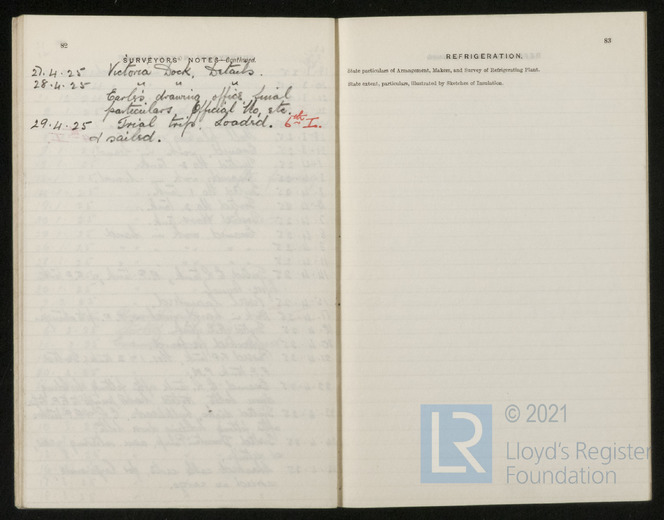 82
SURVEYORS' NOTES—Continued.
27.4.25 Victoria Dock, Details.
28.4.25 " "
Earle's drawing office, final
particulars, Official No, etc.
29.4.25 Trial trip. Loaded. 6th I.
& sailed.
83
REFRIGERATION.
State particulars of Arrangement, Makers, and Survey of Refrigerating Plant.
State extent, particulars, illustrated by Sketches of Insulation.
LR
© 2021
Lloyd's Register
Foundation